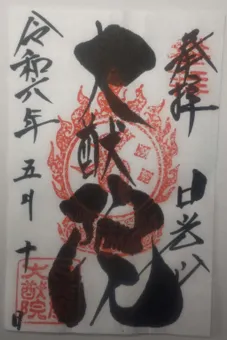 奉拝 日光山
大猷院
令和六年 五月 十日
大猷院